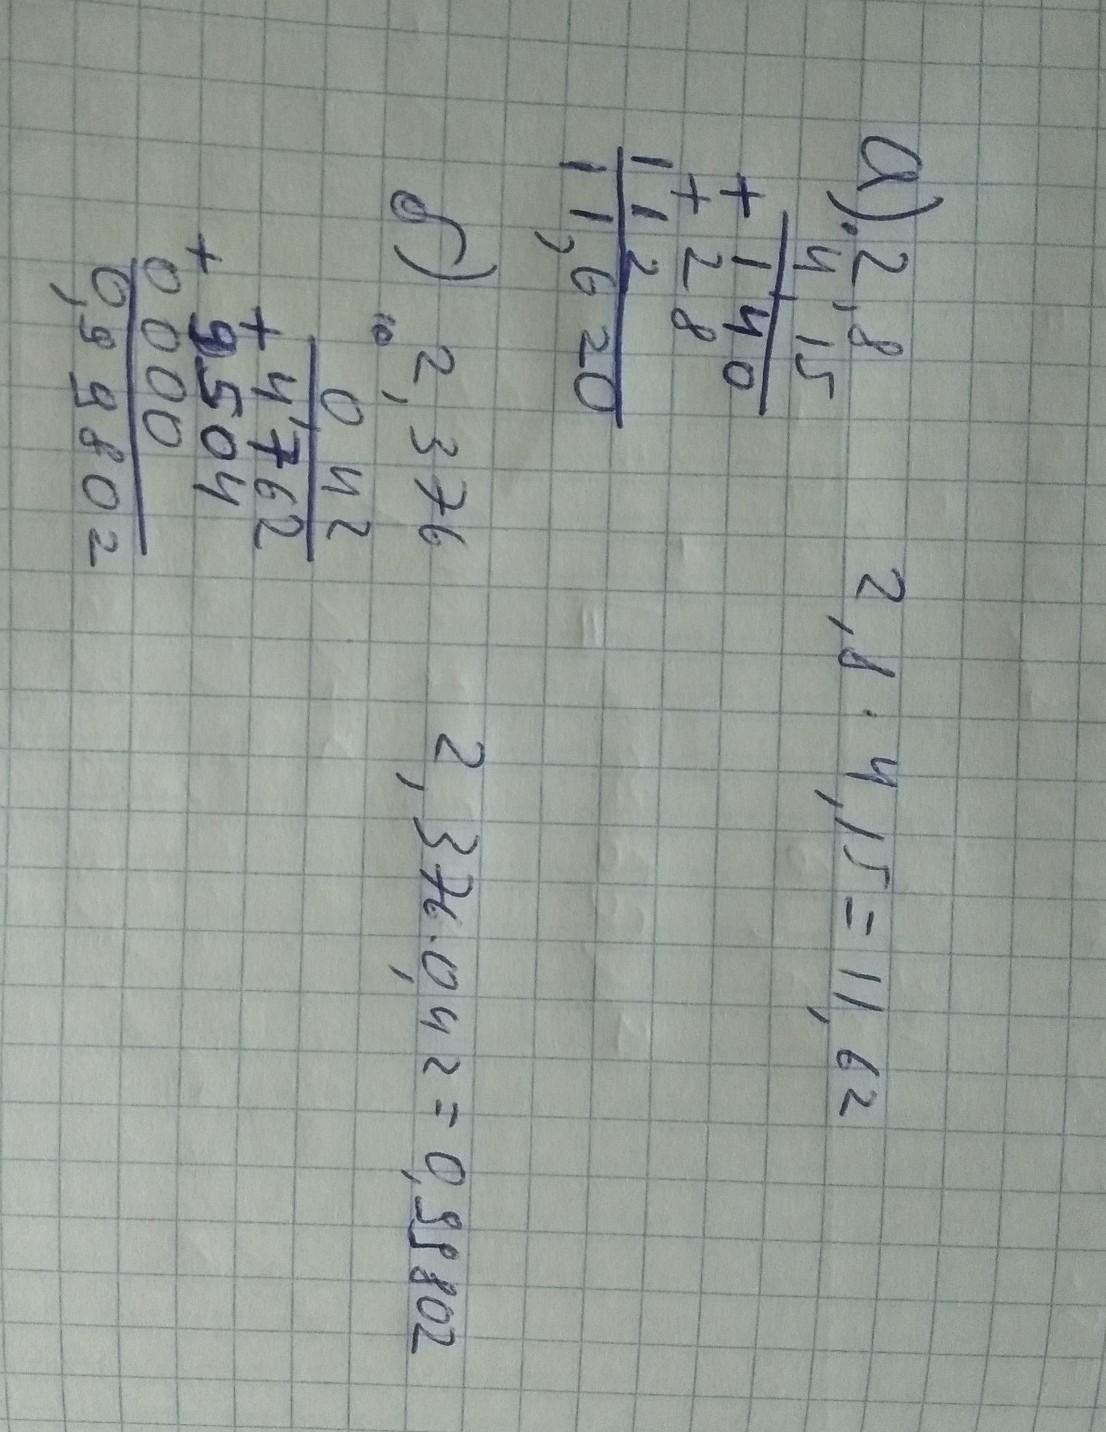 а). 2,8
4,15
+ 140
+ 28
112
11,620
2,8 · 4,15 = 11,62
б) 2,376
0 42
+ 4762
+ 9504
0000
0,99802
2,376 · 0,42 = 0,99802